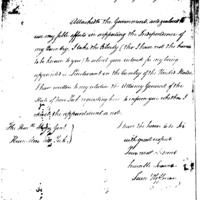 Attached to the Government, and zealous to
use my full efforts in supporting the Independence of
my Country, I take the liberty (tho I have not the honor
to be known to you) to solicit your interest for my being
appointed a Lieutenant in the Cavalry of the United States
I have written to my relation the Attorney General of the
State of New York requesting him to inform you whether I
the appointment or not.
The Honble Major Genl
Hamilton New York
I have the honor to be Sir
with great respect
Your most Obedt
humble Servant